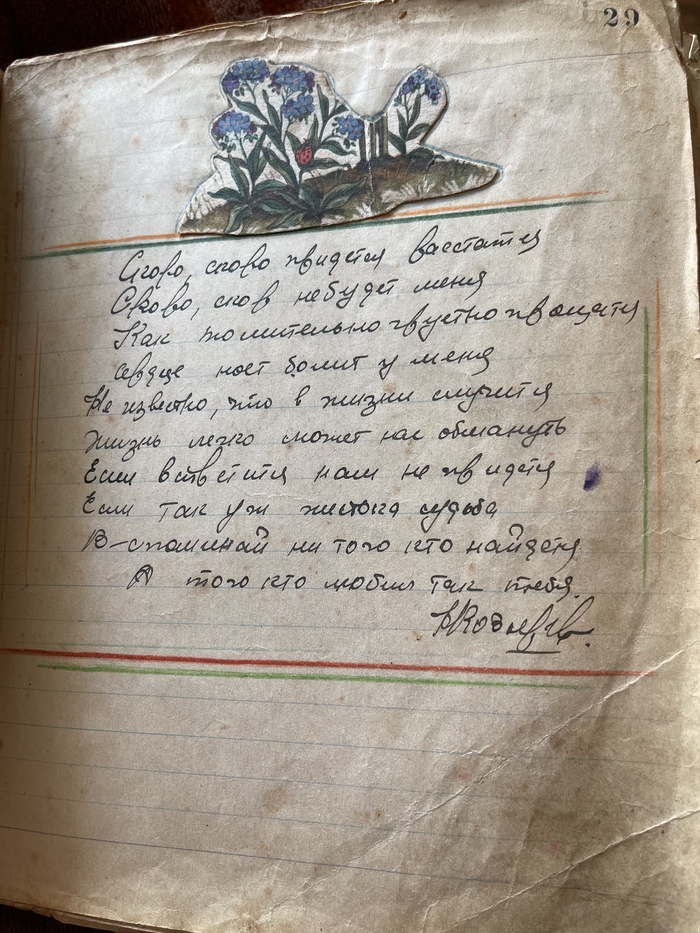 29
Скоро, скоро придется расстатся
Скоро, скор небудет меня
Как томительно грустно прощатся
сердце ноет болит у меня
Не известно, что в жизни случится
Жизнь легко может нас обмануть
Если встретится нам не придется
Если так уж жестока судьба
В-споминай ни того кто найдется
А того кто любил так тебя.